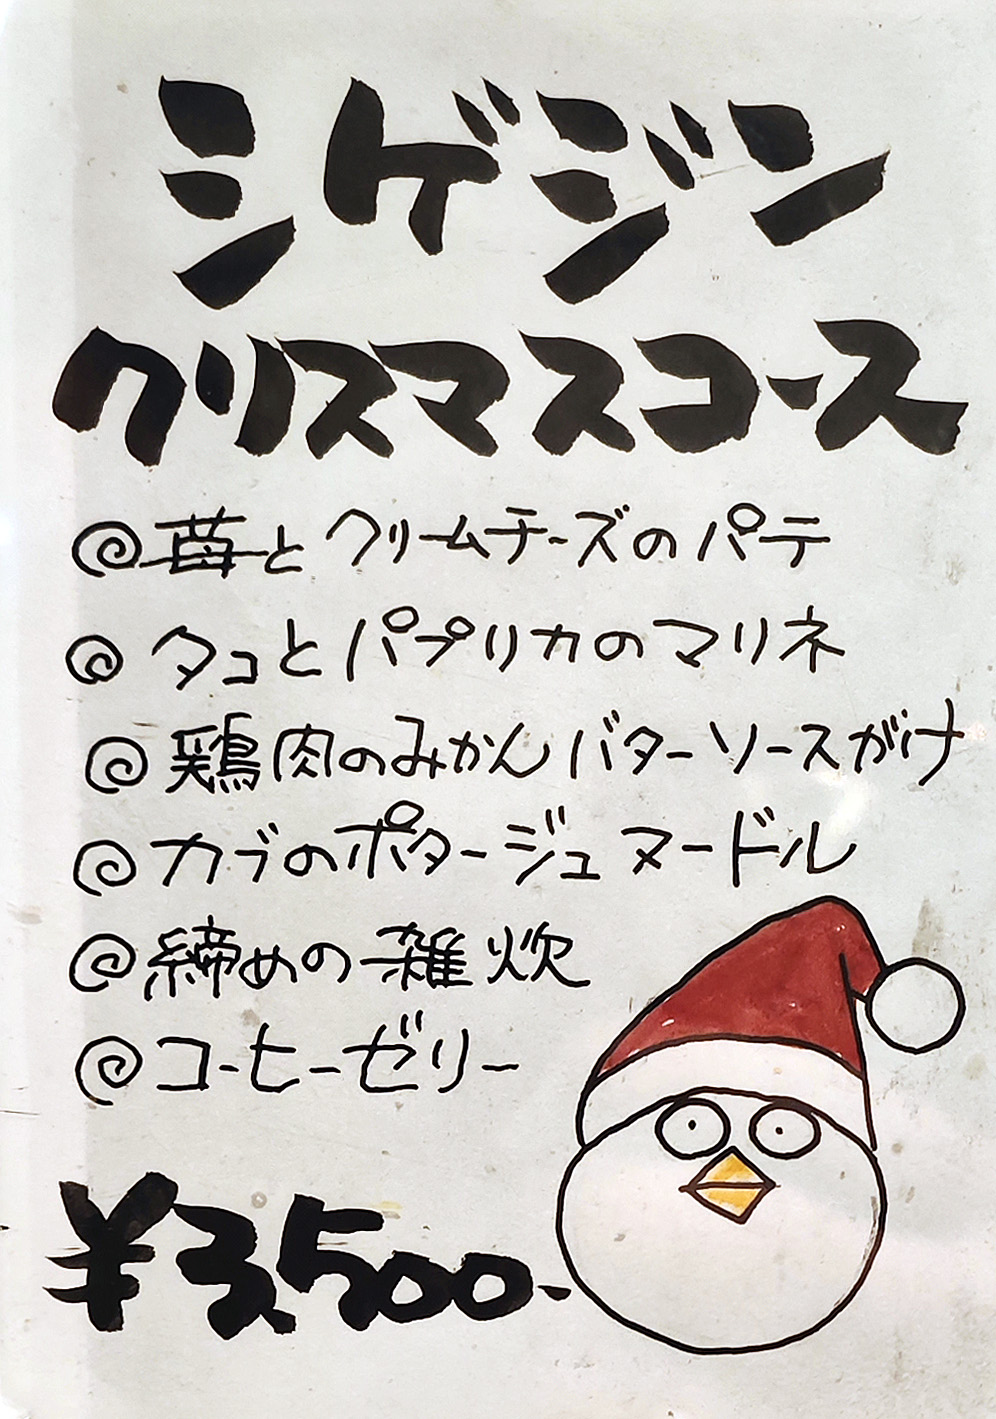 シゲジン
クリスマスコース
@苺とクリームチーズのパテ
@タコとパプリカのマリネ
@鶏肉のみかんバターソースがけ
@カブのポタージュヌードル
@締めの雑炊
@コーヒーゼリー
¥3,500-